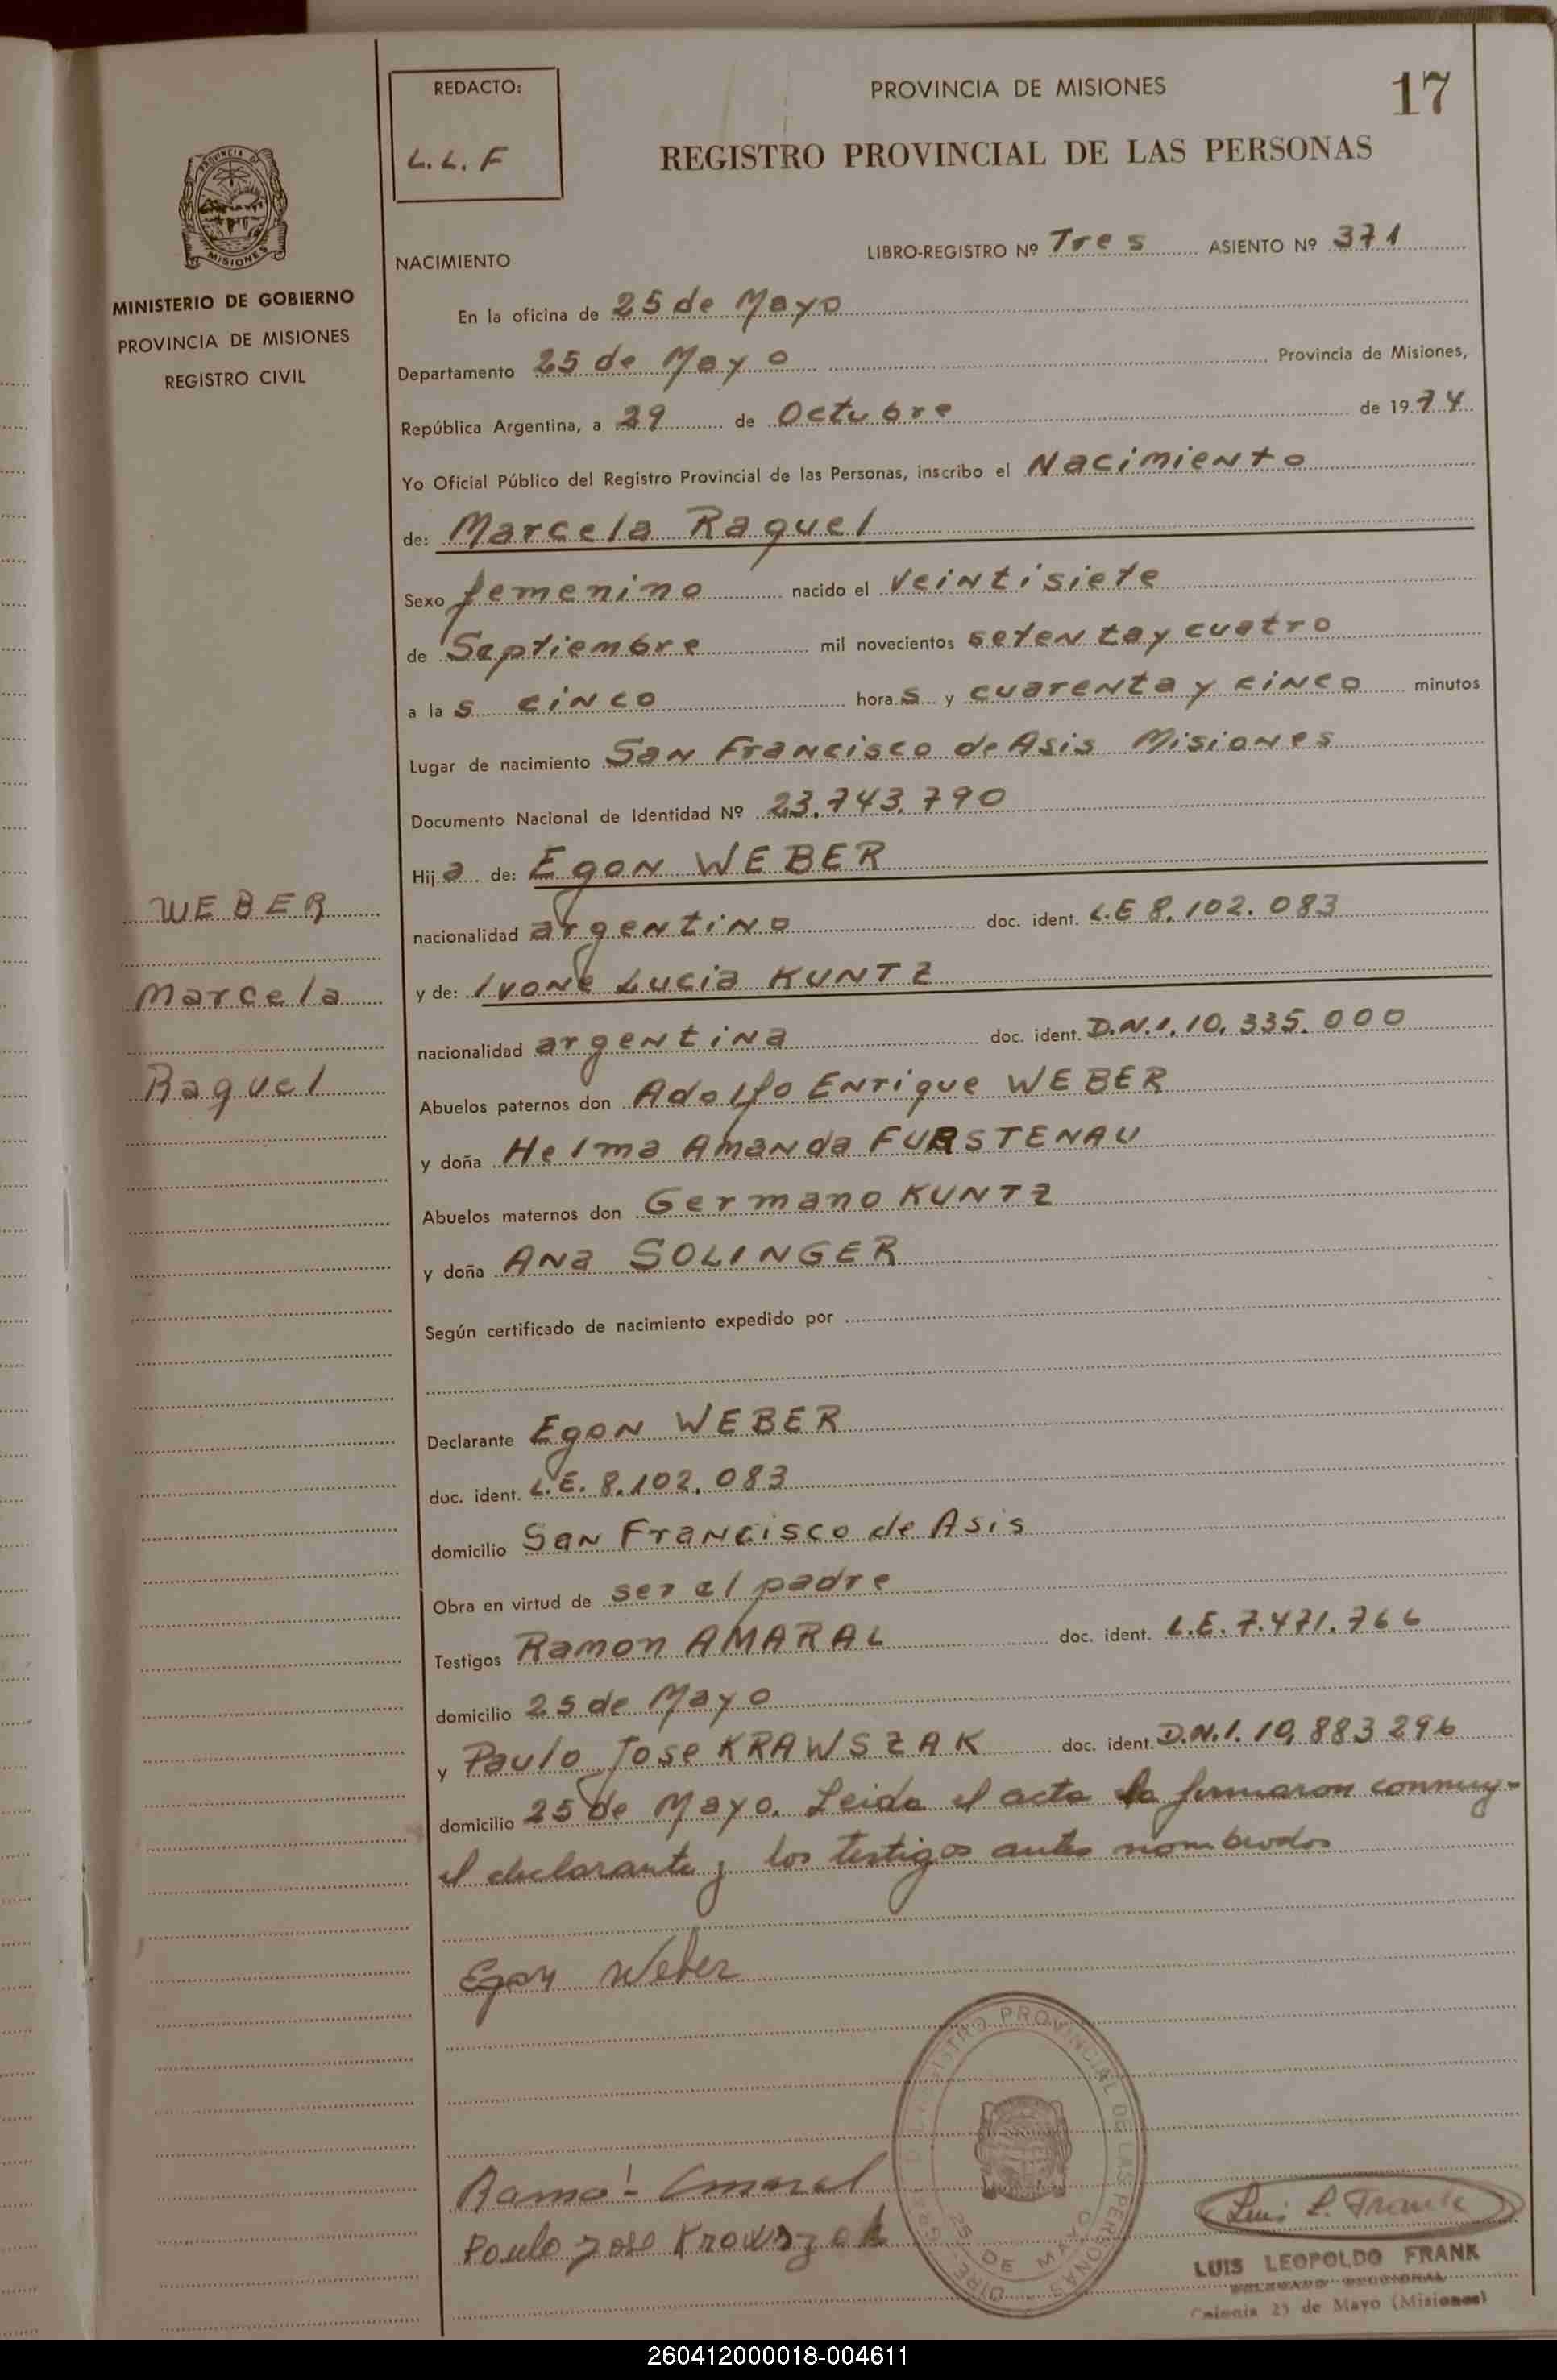 17
REDACTO:
L. L. F
PROVINCIA DE MISIONES
REGISTRO PROVINCIAL DE LAS PERSONAS
PROVINCIA DE
MISIONES
MINISTERIO DE GOBIERNO
PROVINCIA DE MISIONES
REGISTRO CIVIL
NACIMIENTO
LIBRO-REGISTRO Nº Tres ASIENTO Nº 371
En la oficina de 25 de Mayo
Departamento 25 de Mayo Provincia de Misiones,
República Argentina, a 29 de Octubre de 1974
Yo Oficial Público del Registro Provincial de las Personas, inscribo el Nacimiento
de: Marcela Raquel
Sexo femenino nacido el veintisiete
de Septiembre mil novecientos setenta y cuatro
a las cinco horas y cuarenta y cinco minutos
Lugar de nacimiento San Francisco de Asis Misiones
Documento Nacional de Identidad Nº 23.743.790
Hija de: Egon WEBER
nacionalidad argentino doc. ident. L.E 8.102.083
y de: Ivone Lucia KUNTZ
nacionalidad argentina doc. ident. D.N.I. 10.335.000
Abuelos paternos don Adolfo Enrique WEBER
y doña Helma Amanda FURSTENAU
Abuelos maternos don Germano KUNTZ
y doña Ana SOLINGER
Según certificado de nacimiento expedido por
WEBER
Marcela
Raquel
Declarante Egon WEBER
doc. ident. L.E. 8.102.083
domicilio San Francisco de Asis
Obra en virtud de ser el padre
Testigos Ramon AMARAL doc. ident. L.E. 7.471.766
domicilio 25 de Mayo
y Paulo Jose KRAWSZAK doc. ident. D.N.I. 10,883 296
domicilio 25 de Mayo. Leida el acta la firmaron conmigo
el declarante y los testigos antes nombrados
Egon Weber
Ramón Amaral
Paulo Jose Krawszak
REGISTRO PROVINCIAL DE LAS PERSONAS
25 DE MAYO
Luis L. Frank
LUIS LEOPOLDO FRANK
Colonia 25 de Mayo (Misiones)
260412000018-004611